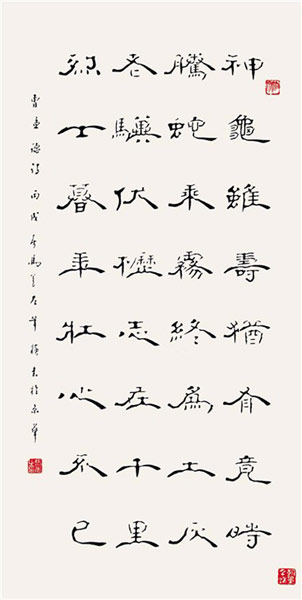 神龜雖壽猶有竟時
騰蛇乘霧終為土灰
老驥伏櫪志在千里
烈士暮年壯心不已
曹孟德詩丙戌 馬 左筆 於京華